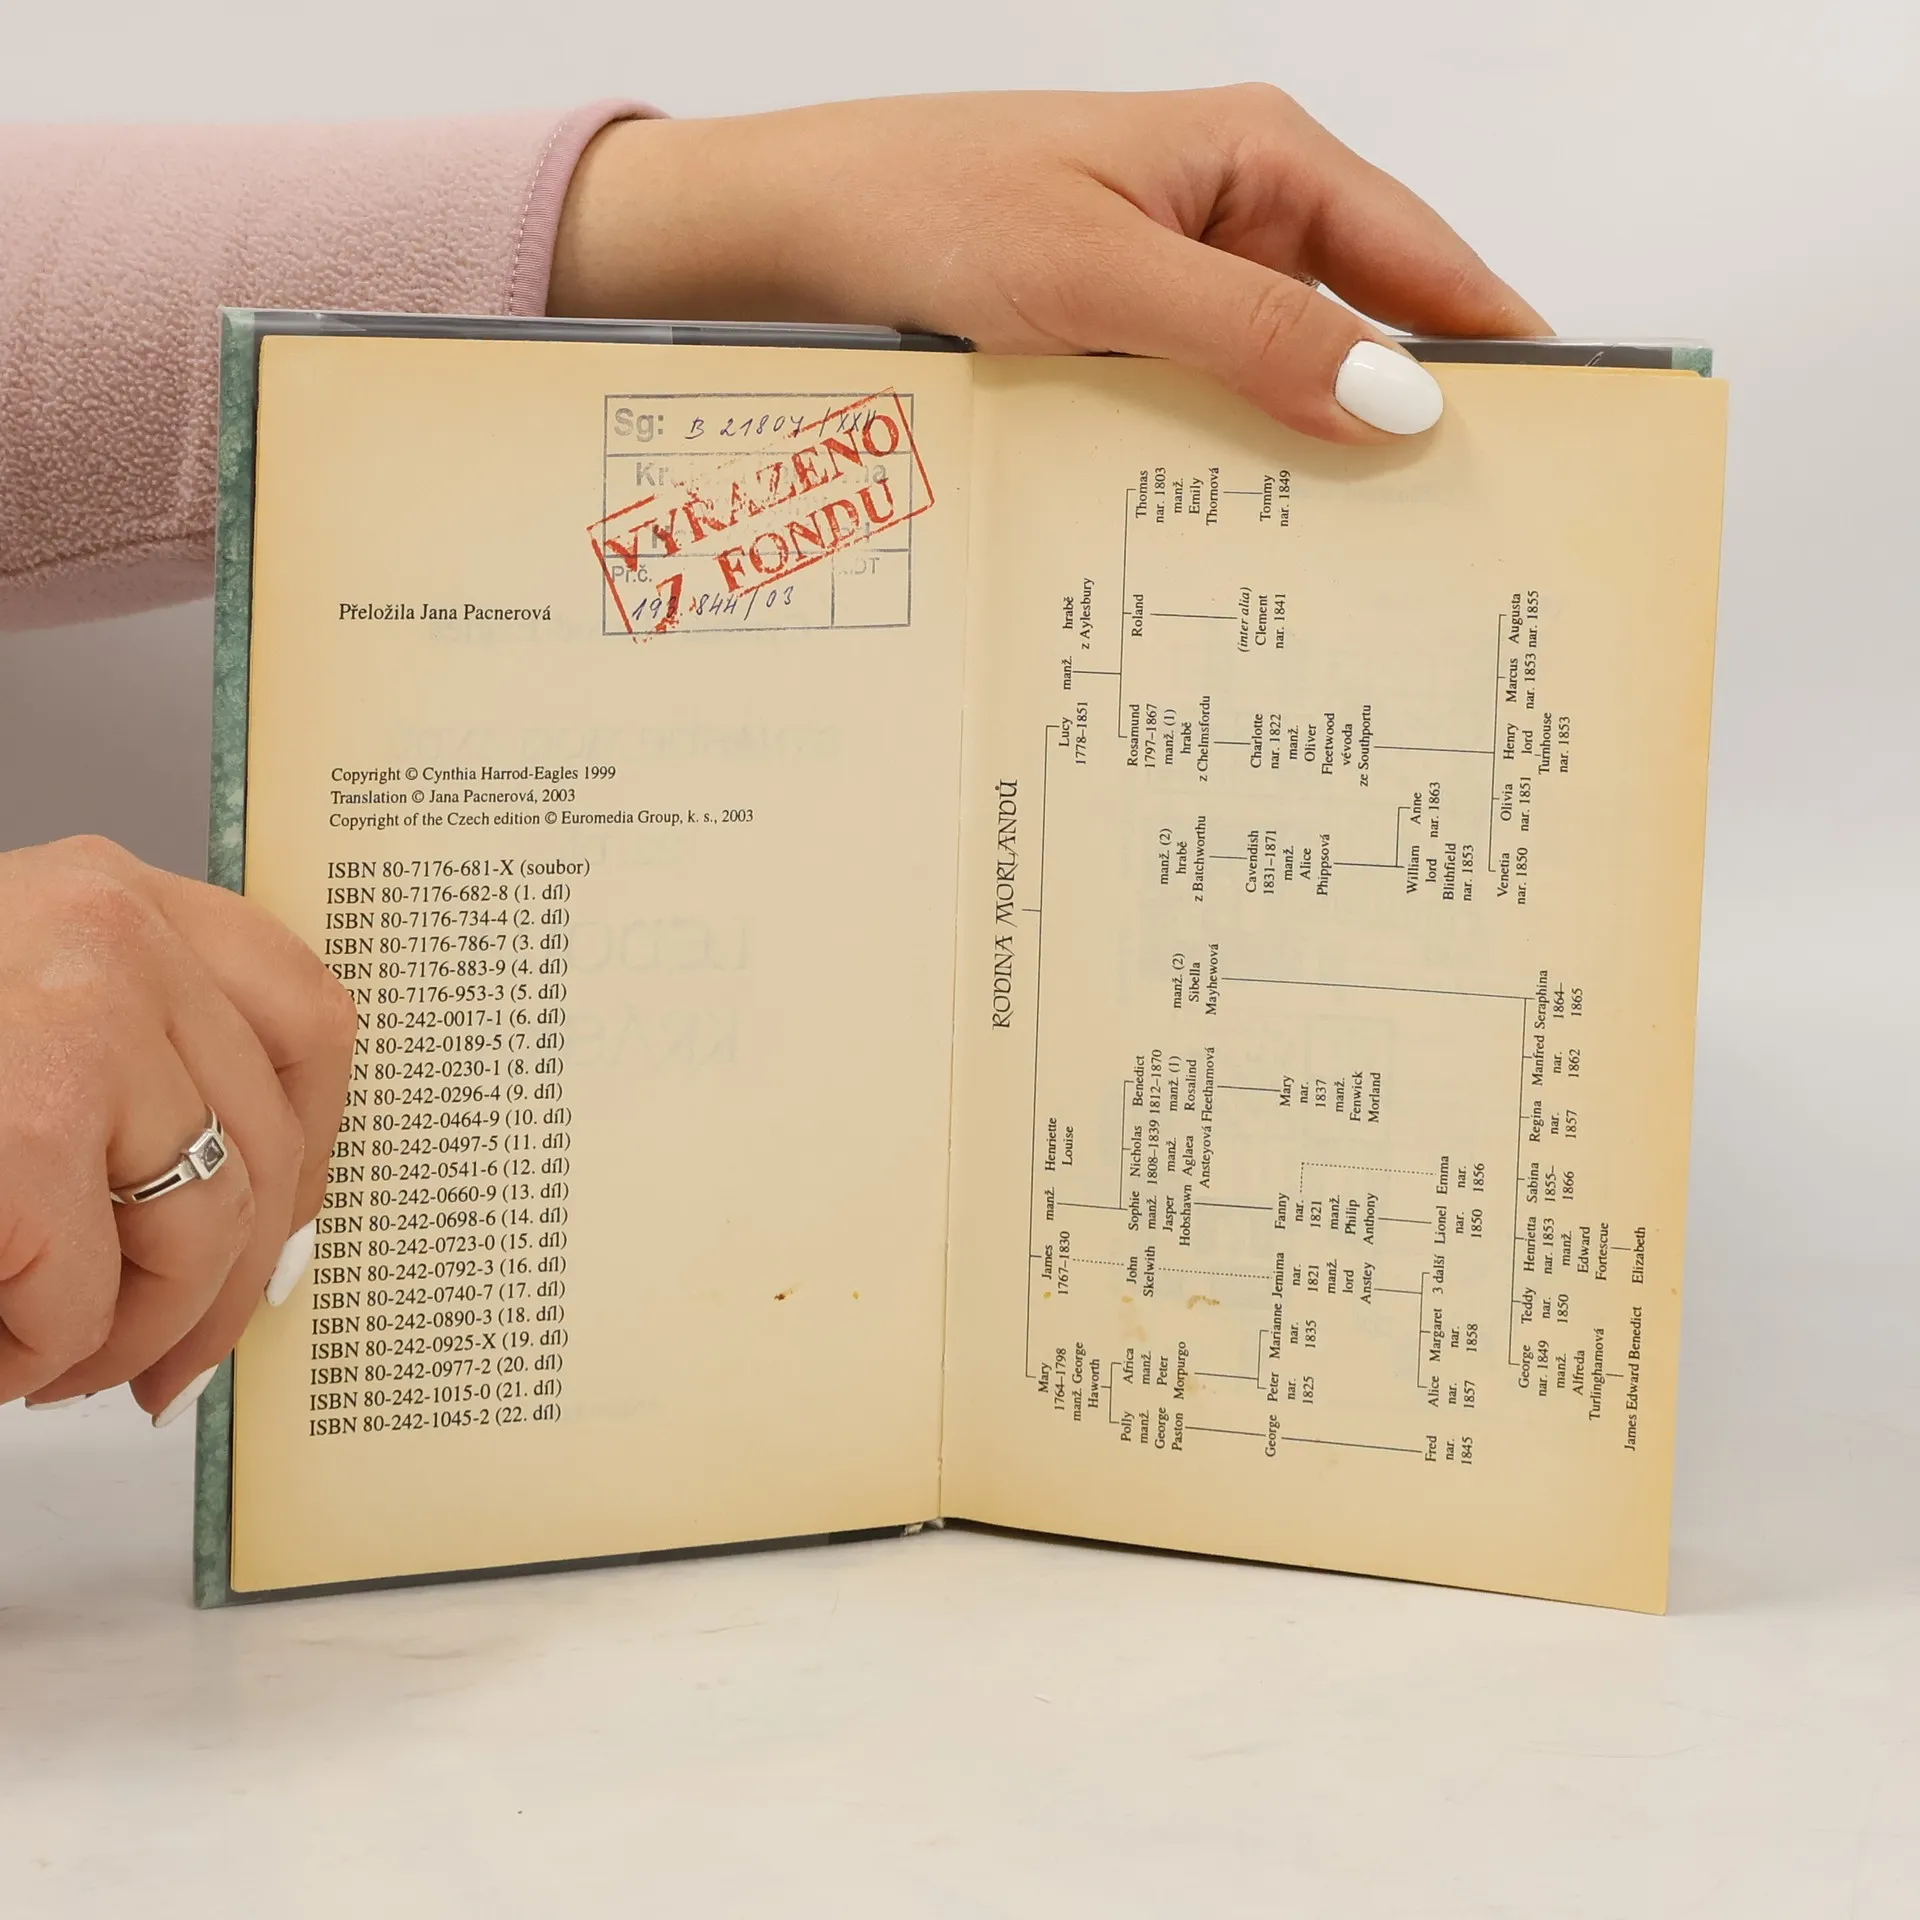 Sg: B 21807/XXII
VYŘAZENO
Z FONDU
Př.č.
193.844/03
Přeložila Jana Pacnerová
Copyright © Cynthia Harrod-Eagles 1999
Translation © Jana Pacnerová, 2003
Copyright of the Czech edition © Euromedia Group, k. s., 2003
ISBN 80-7176-681-X (soubor)
ISBN 80-7176-682-8 (1. díl)
ISBN 80-7176-734-4 (2. díl)
ISBN 80-7176-786-7 (3. díl)
ISBN 80-7176-883-9 (4. díl)
BN 80-7176-953-3 (5. díl)
N 80-242-0017-1 (6. díl)
N 80-242-0189-5 (7. díl)
N 80-242-0230-1 (8. díl)
BN 80-242-0296-4 (9. díl)
BN 80-242-0464-9 (10. díl)
SBN 80-242-0497-5 (11. díl)
SBN 80-242-0541-6 (12. díl)
SBN 80-242-0660-9 (13. díl)
ISBN 80-242-0698-6 (14. díl)
ISBN 80-242-0723-0 (15. díl)
ISBN 80-242-0792-3 (16. díl)
ISBN 80-242-0740-7 (17. díl)
ISBN 80-242-0890-3 (18. díl)
ISBN 80-242-0925-X (19. díl)
ISBN 80-242-0977-2 (20. díl)
ISBN 80-242-1015-0 (21. díl)
ISBN 80-242-1045-2 (22. díl)
RODINA MORLANDŮ
Mary
1764–1798
manž. George
Haworth
James
1767–1830
manž.
Henriette
Louise
Lucy
1778–1851
manž.
hrabě
z Aylesbury
Polly
manž.
George
Paston
Africa
manž.
Peter
Morpurgo
John
Skelwith
Sophie
manž.
Jasper
Hobshawn
Nicholas
1808–1839
manž.
Aglaea
Ansteyová
Benedict
1812–1870
manž. (1)
Rosalind
Fleethamová
manž. (2)
Sibella
Mayhewová
manž. (2)
hrabě
z Batchworthu
Rosamund
1797–1867
manž. (1)
hrabě
z Chelmsfordu
Roland
Thomas
nar. 1803
manž.
Emily
Thornová
George
Peter
nar.
1825
Marianne
nar.
1835
Jemima
nar.
1821
manž.
lord
Anstey
Fanny
nar.
1821
manž.
Philip
Anthony
Mary
nar.
1837
manž.
Fenwick
Morland
Cavendish
1831–1871
manž.
Alice
Phippsová
Charlotte
nar. 1822
manž.
Oliver
Fleetwood
vévoda
ze Southportu
(inter alia)
Clement
nar. 1841
Tommy
nar. 1849
Fred
nar.
1845
Alice
nar.
1857
Margaret
nar.
1858
3 další
Lionel
nar.
1850
Emma
nar.
1856
William
lord
Blithfield
nar. 1853
Anne
nar. 1863
George
nar. 1849
manž.
Alfreda
Turlinghamová
Teddy
nar.
1850
Henrietta
nar. 1853
manž.
Edward
Fortescue
Sabina
1855–
1866
Regina
nar.
1857
Manfred
nar.
1862
Seraphina
1864–
1865
Venetia
nar. 1850
Olivia
nar. 1851
Henry
lord
Turnhouse
nar. 1853
Marcus
nar. 1853
Augusta
nar. 1855
James Edward Benedict
Elizabeth